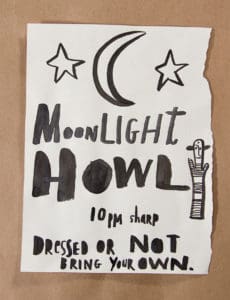 MOONLIGHT
HOWL
10 PM sharp
DRESSED OR NOT
BRING YOUR OWN.